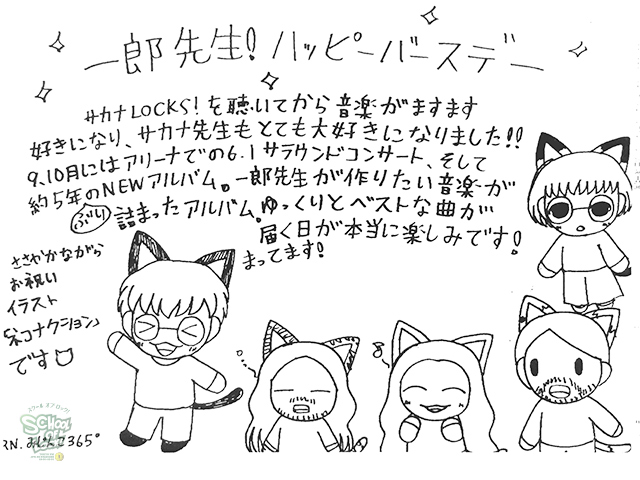 一郎先生! ハッピーバースデー
サカナLOCKS!を聴いてから音楽がますます
好きになり、サカナ先生もとても大好きになりました!!
9、10月にはアリーナでの6.1サラウンドコンサート、そして
約5年ぶりのNEWアルバム。一郎先生が作りたい音楽が
詰まったアルバム。ゆっくりとベストな曲が
届く日が本当に楽しみです!
まってます!
ささやかながら
お祝い
イラスト
「ネコナクション」
です
SCHOOL OF LOCK!
RN.みけねこ365°